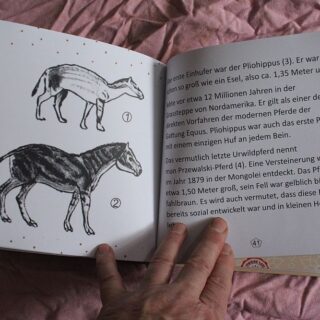 ①
②
erste Einhufer war der Pliohippus (3). Er war
so groß wie ein Esel, also ca. 1,35 Meter u
vor etwa 12 Millionen Jahren in der
von Nordamerika. Er gilt als einer de
direkten Vorfahren der modernen Pferde der
Equus. Pliohippus war auch das erste P
mit einem einzigen Huf an jedem Bein.
Das vermutlich letzte Urwildpferd nennt
Przewalski-Pferd (4). Eine Versteinerung w
im Jahr 1879 in der Mongolei entdeckt. Das Pf
etwa 1,50 Meter groß, sein Fell war gelblich b
fahlbraun. Es wird auch vermutet, dass diese
bereits sozial entwickelt war und in kleinen H
41